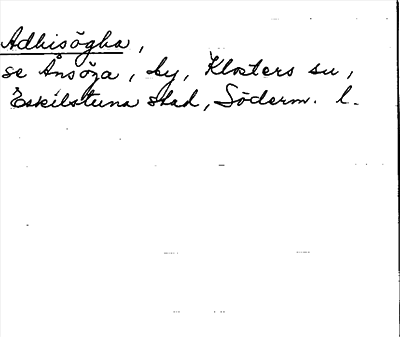 Adhisögha,
se Ånsöga, by, Klosters su,
Eskilstuna stad, Söderm. l.